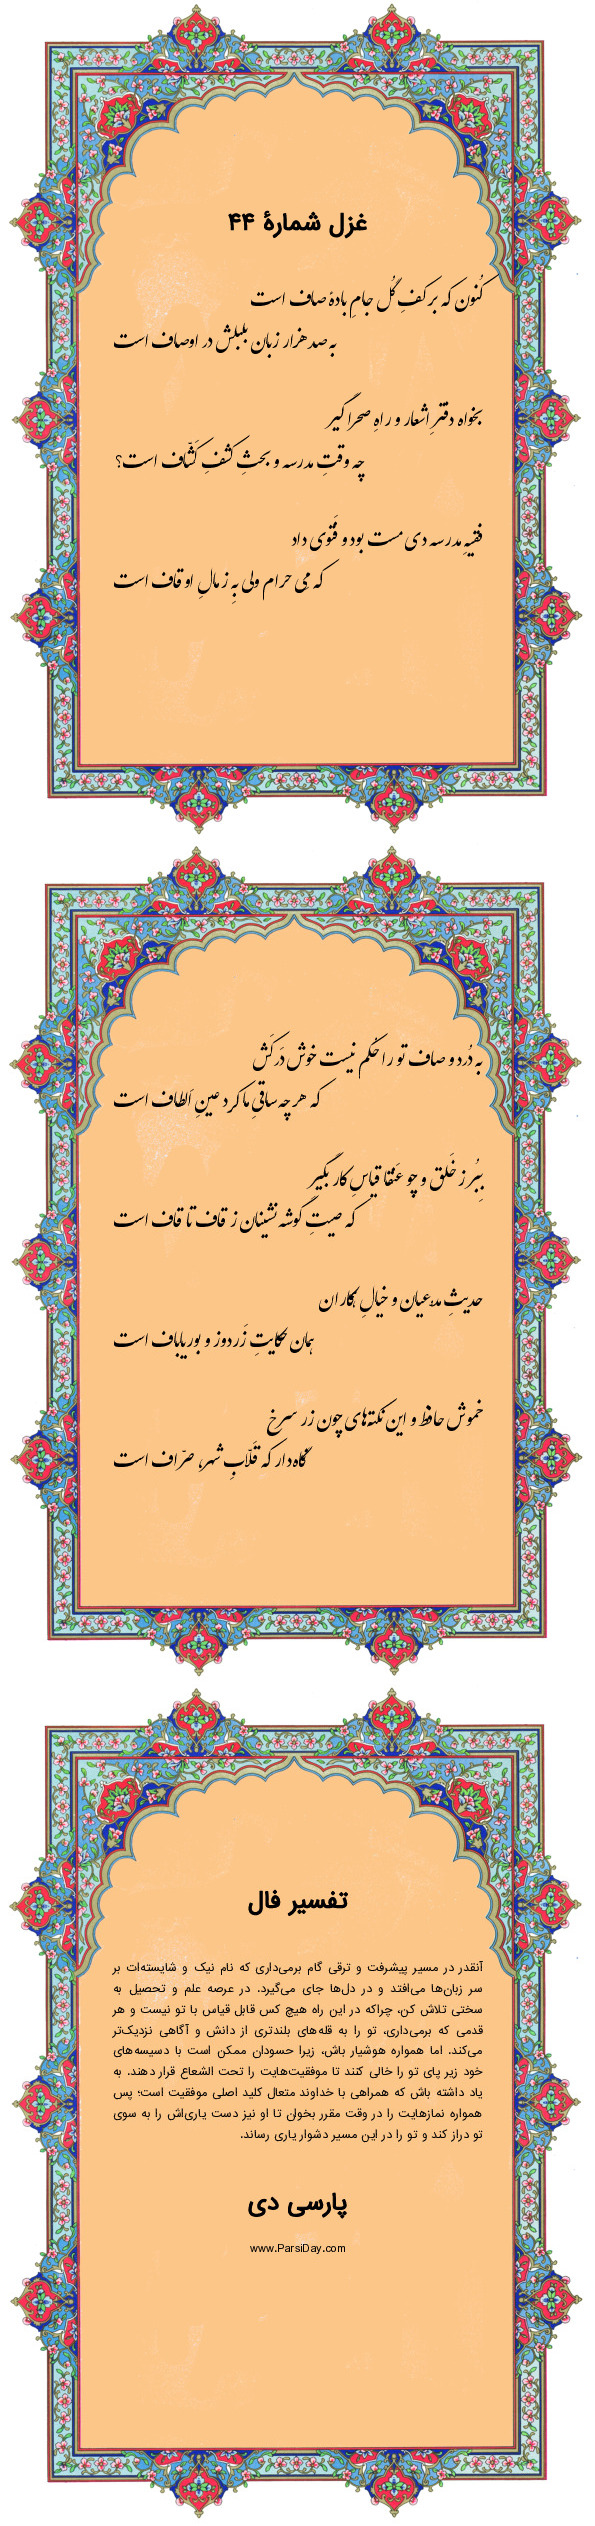 غزل شمارهٔ ۴۴
کُنون که بر کفِ گُل جامِ بادهٔ صاف است
به صد هزار زبان بلبلش در اوصاف است
بخواه دفترِ اشعار و راهِ صحرا گیر
چه وقتِ مدرسه و بحثِ کشفِ کَشّاف است؟
فقیهِ مدرسه دی مست بود و فَتوی داد
که مِی حرام ولی بِه ز مالِ اوقاف است
به دُرد و صاف تو را حُکم نیست خوش دَرکَش
که هر چه ساقیِ ما کرد عینِ اَلطاف است
بِبُر ز خَلق و چو عَنقا قیاسِ کار بگیر
که صیتِ گوشه نشینان ز قاف تا قاف است
حدیثِ مدعیان و خیالِ همکاران
همان حکایتِ زَردوز و بوریاباف است
خموش حافظ و این نکته‌های چون زر سرخ
نگاه‌دار که قَلّابِ شهر، صرّاف است
تفسیر فال
آنقدر در مسیر پیشرفت و ترقی گام برمی‌داری که نام نیک و شایسته‌ات بر
سر زبان‌ها می‌افتد و در دل‌ها جای می‌گیرد. در عرصه علم و تحصیل به
سختی تلاش کن، چراکه در این راه هیچ کس قابل قیاس با تو نیست و هر
قدمی که برمی‌داری، تو را به قله‌های بلندتری از دانش و آگاهی نزدیک‌تر
می‌کند. اما همواره هوشیار باش، زیرا حسودان ممکن است با دسیسه‌های
خود زیر پای تو را خالی کنند تا موفقیت‌هایت را تحت الشعاع قرار دهند. به
یاد داشته باش که همراهی با خداوند متعال کلید اصلی موفقیت است؛ پس
همواره نمازهایت را در وقت مقرر بخوان تا او نیز دست یاری‌اش را به سوی
تو دراز کند و تو را در این مسیر دشوار یاری رساند.
پارسی دی
www.ParsiDay.com